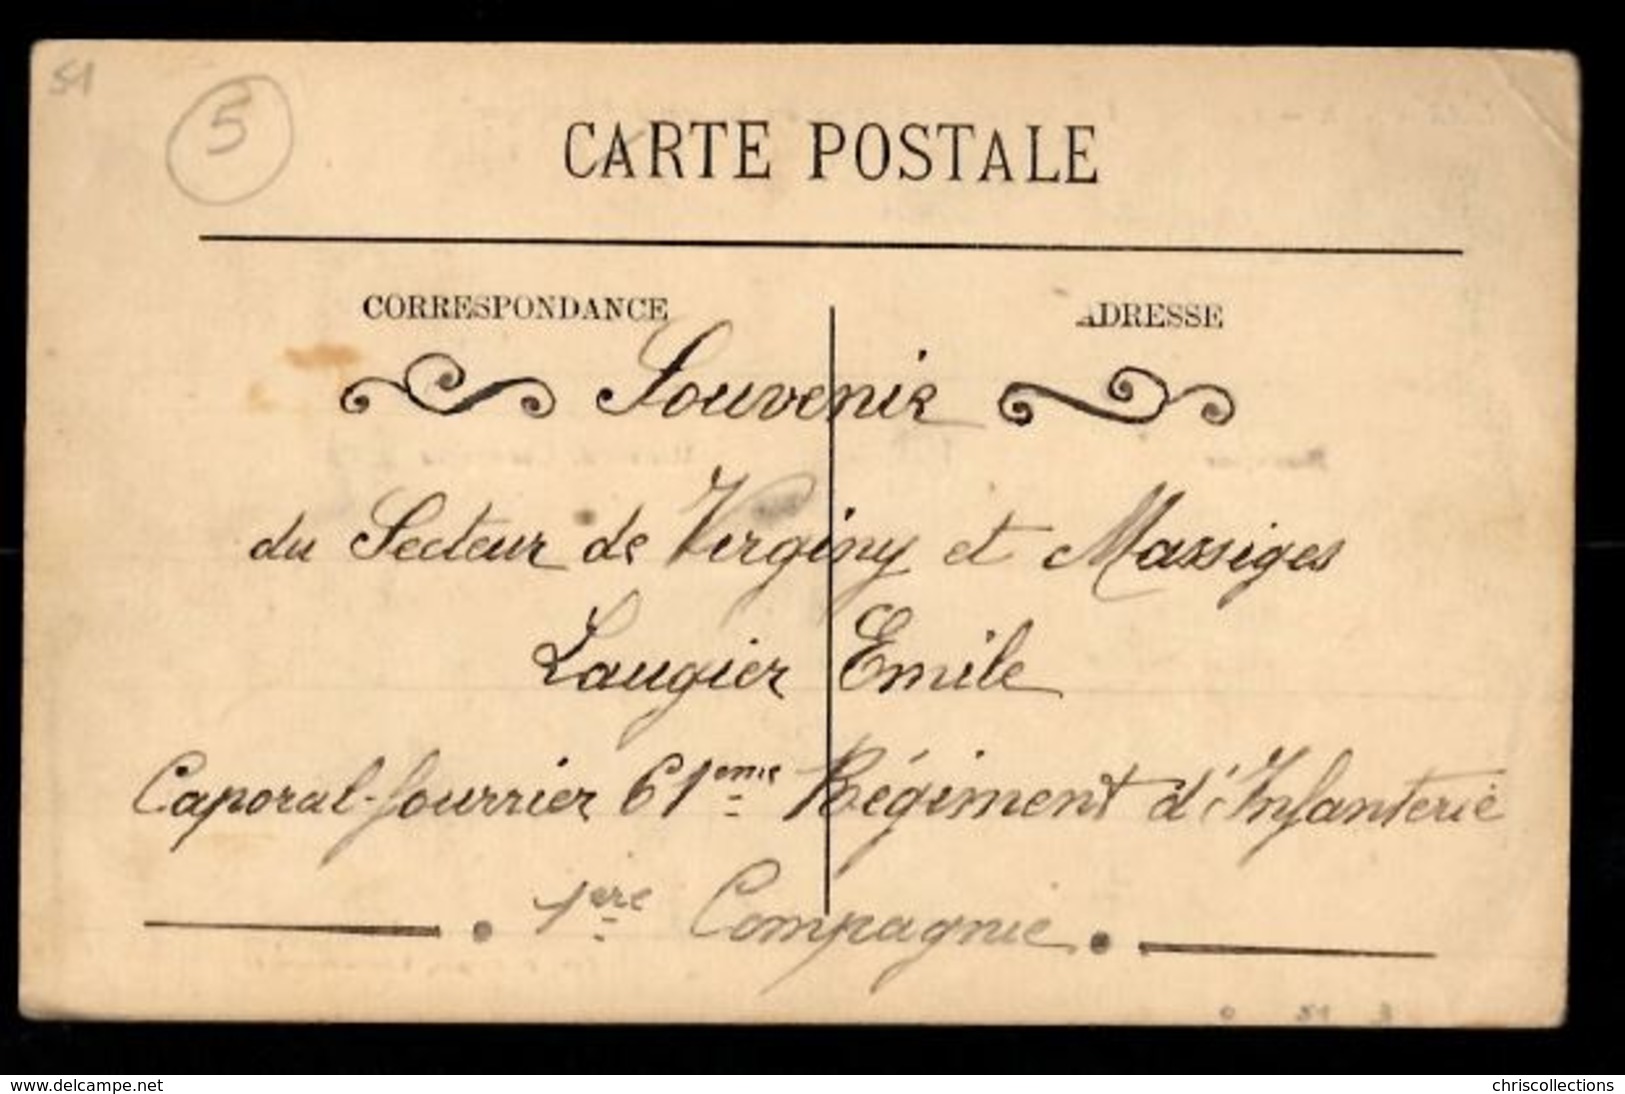 51
5
CARTE POSTALE
CORRESPONDANCE
ADRESSE
Souvenir
du Secteur de Virginy et Massiges
Laugier Emile
Caporal-fourrier 61eme Régiment d'Infanterie
1ère Compagnie
www.delcampe.net
chriscollections